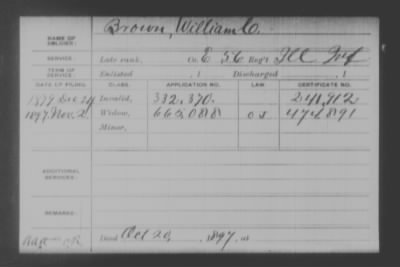 NAME OF SOLDIER: Brown, William C.
SERVICE: Late rank, Co. E 56 Reg't Ill Inf
TERM OF SERVICE: Enlisted , 1 Discharged , 1
DATE OF FILING. CLASS. APPLICATION NO. LAW. CERTIFICATE NO.
1879 Invalid, 332.370. 241,912
1897 Nov. 2 Widow, 665088 474891
Minor,
ADDITIONAL SERVICES:
REMARKS:
Died Oct 20, 1897, at